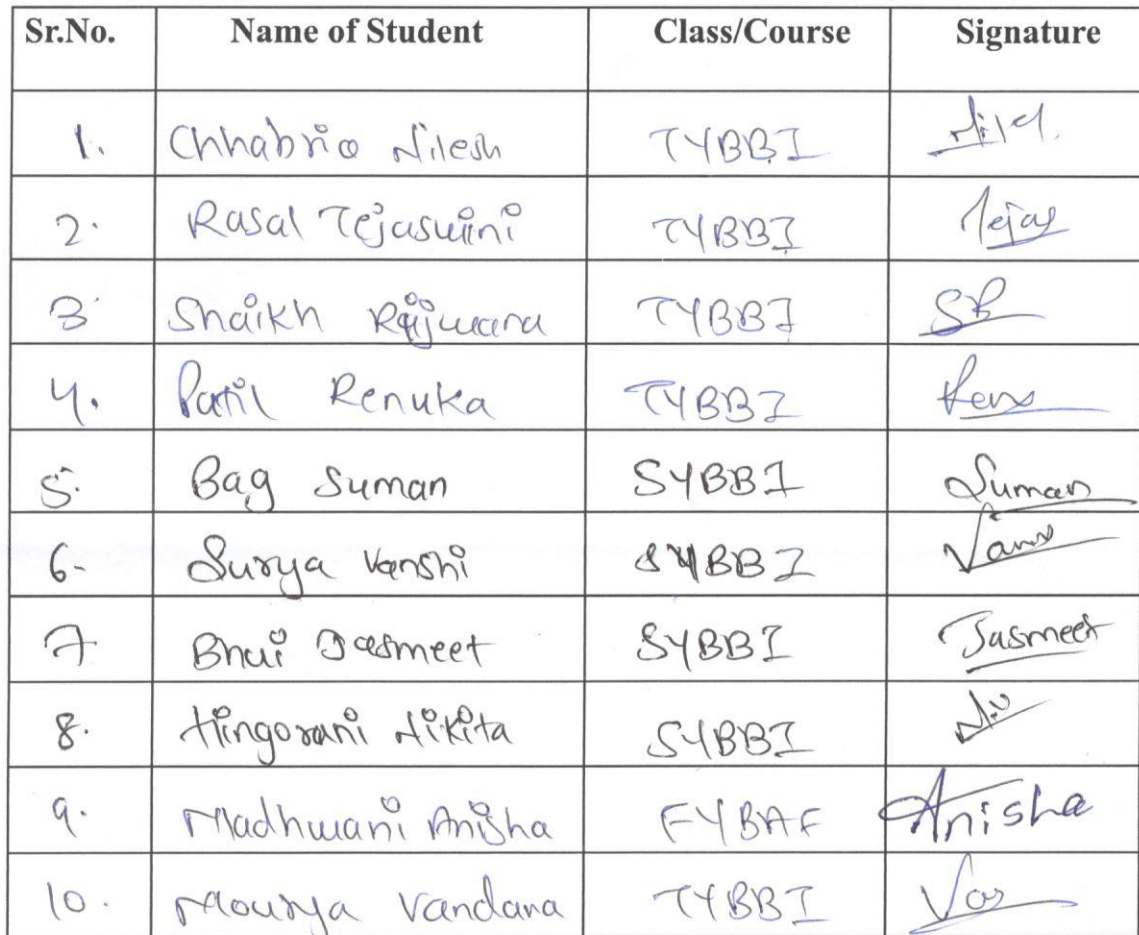 Sr.No. Name of Student Class/Course Signature
1. Chhabria Nilesh TYBBI
2. Rasal Tejaswini TYBBI Tejas
3 Shaikh Rijwana TYBBI SR
4. Patil Renuka TYBBI Renu
5. Bag Suman SYBBI Suman
6- Surya Vanshi SYBBI
7 Bhui Jasmeet SYBBI Jasmeet
8. Hingorani Nikita SYBBI
9. Madhwani Anisha FYBAF Anisha
10. Mourya Vandana TYBBI